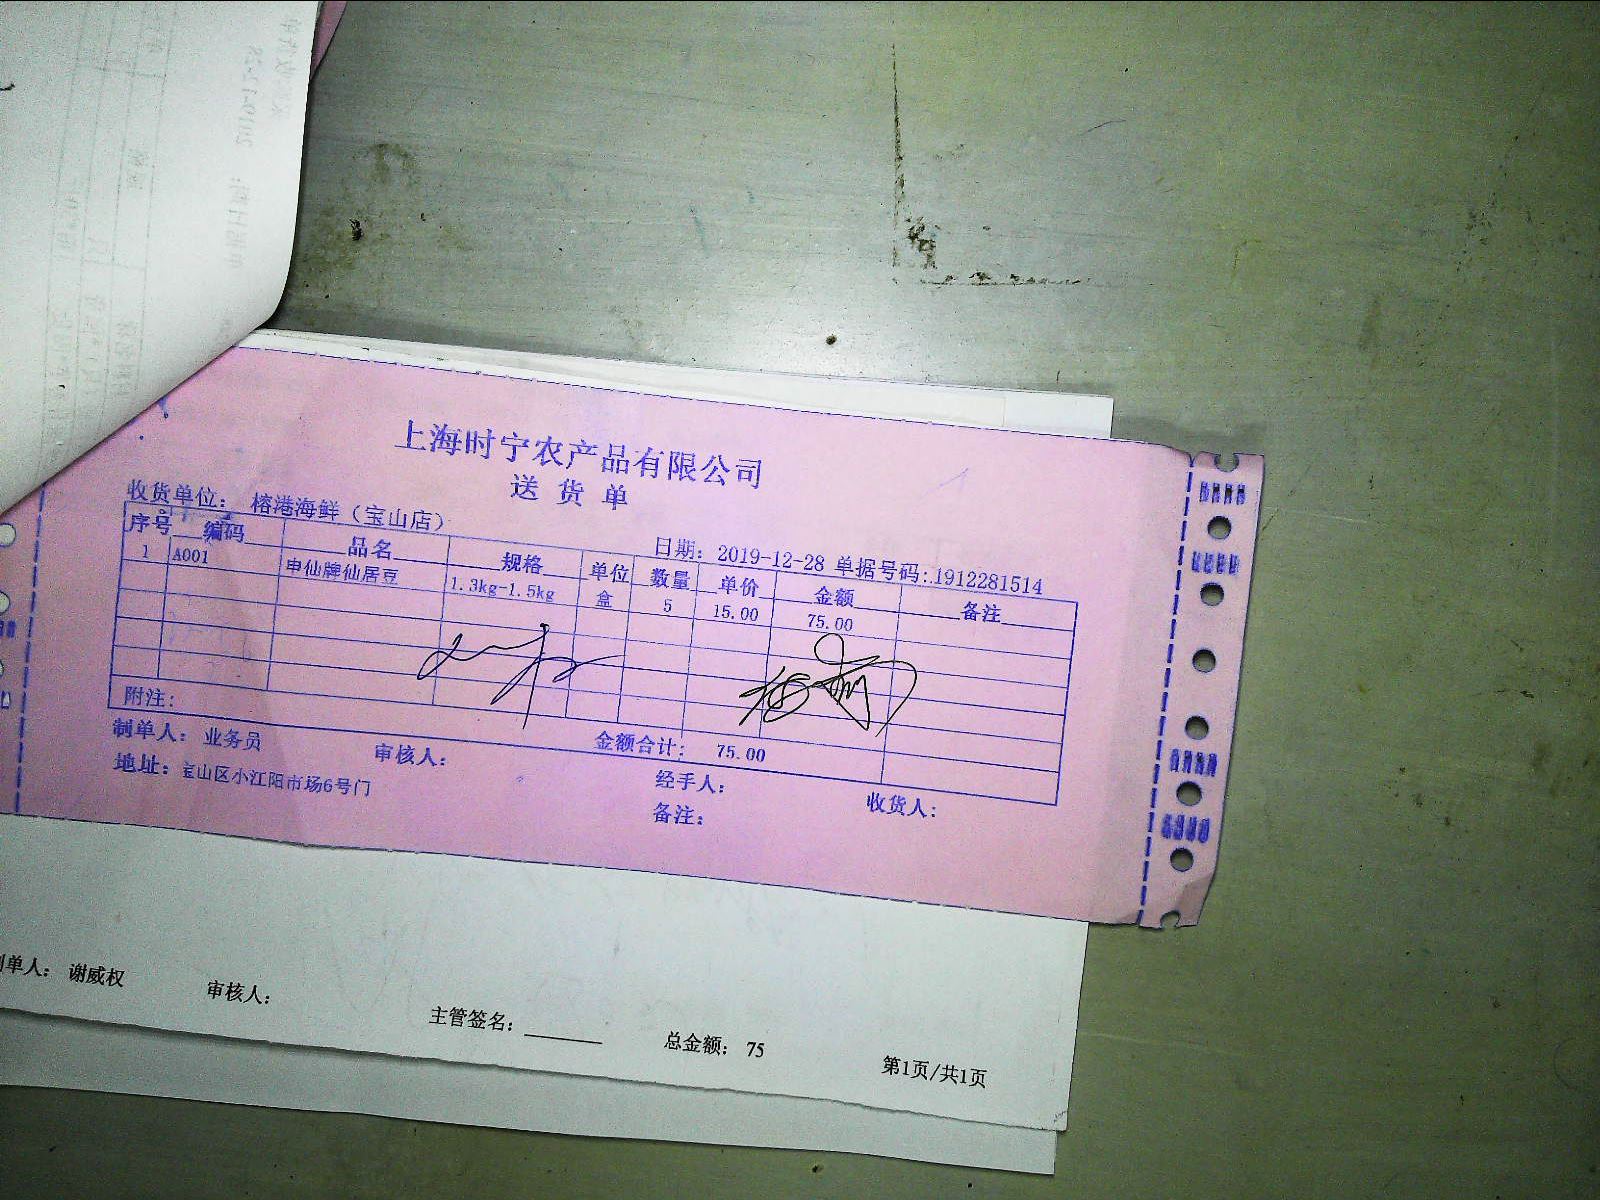 上海时宁农产品有限公司
送货单
收货单位： 榕港海鲜（宝山店） 日期：2019-12-28 单据号码:1912281514
序号 编码 品名 规格 单位 数量 单价 金额 备注
1 A001 申仙牌仙居豆 1.3kg-1.5kg 盒 5 15.00 75.00
附注：
金额合计： 75.00
制单人：业务员 审核人： 经手人： 收货人：
地址：宝山区小江阳市场6号门 备注：
制单人： 谢威权 审核人： 主管签名： 总金额： 75 第1页/共1页